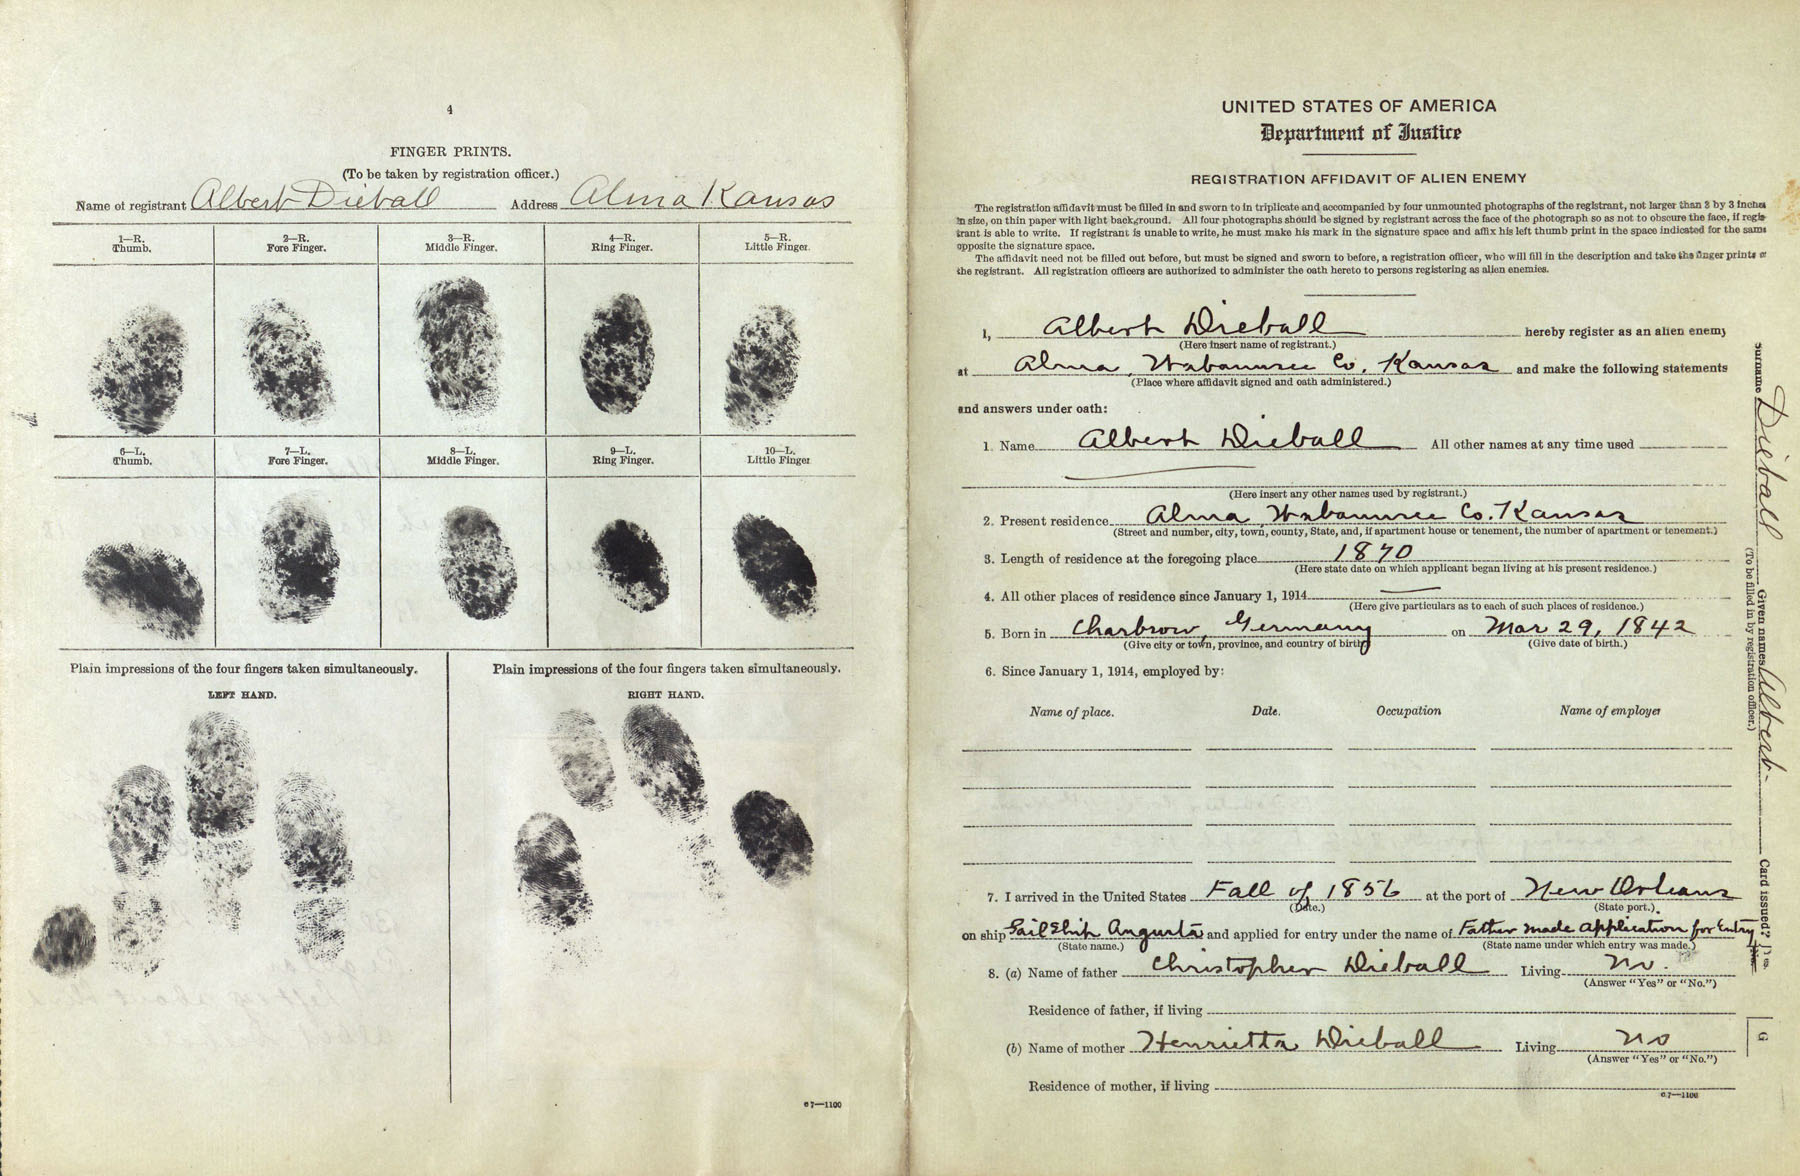 4
FINGER PRINTS.
(To be taken by registration officer.)
Name of registrant Albert Dieball Address Alma Kansas
1—R. Thumb. 2—R. Fore Finger. 3—R. Middle Finger. 4—R. Ring Finger. 5—R. Little Finger.
6—L. Thumb. 7—L. Fore Finger. 8—L. Middle Finger. 9—L. Ring Finger. 10—L. Little Finger
Plain impressions of the four fingers taken simultaneously. Plain impressions of the four fingers taken simultaneously.
LEFT HAND. RIGHT HAND.
c7—1100
UNITED STATES OF AMERICA
Department of Justice
REGISTRATION AFFIDAVIT OF ALIEN ENEMY
The registration affidavit must be filled in and sworn to in triplicate and accompanied by four unmounted photographs of the registrant, not larger than 3 by 3 inches
in size, on thin paper with light background. All four photographs should be signed by registrant across the face of the photograph so as not to obscure the face, if regis-
trant is able to write. If registrant is unable to write, he must make his mark in the signature space and affix his left thumb print in the space indicated for the same
opposite the signature space.
The affidavit need not be filled out before, but must be signed and sworn to before, a registration officer, who will fill in the description and take the finger prints of
the registrant. All registration officers are authorized to administer the oath hereto to persons registering as alien enemies.
I, Albert Dieball hereby register as an alien enemy
(Here insert name of registrant.)
at Alma, Wabaunsee Co. Kansas and make the following statements
(Place where affidavit signed and oath administered.)
and answers under oath:
1. Name Albert Dieball All other names at any time used
(Here insert any other names used by registrant.)
2. Present residence Alma, Wabaunsee Co. Kansas
(Street and number, city, town, county, State, and, if apartment house or tenement, the number of apartment or tenement.)
3. Length of residence at the foregoing place 1870
(Here state date on which applicant began living at his present residence.)
4. All other places of residence since January 1, 1914 —
(Here give particulars as to each of such places of residence.)
5. Born in Charbrow, Germany on Mar 29, 1842
(Give city or town, province, and country of birth) (Give date of birth.)
6. Since January 1, 1914, employed by:
Name of place. Date. Occupation Name of employer
7. I arrived in the United States Fall of 1856 at the port of New Orleans
(Date.) (State port.)
on ship Sail Ship Augusta and applied for entry under the name of Father made application for Entry
(State name.) (State name under which entry was made.)
8. (a) Name of father Christopher Dieball Living No.
(Answer "Yes" or "No.")
Residence of father, if living
(b) Name of mother Henrietta Dieball Living No
(Answer "Yes" or "No.")
Residence of mother, if living
c7—1100
Surname Dieball Given names Albert Card issued?
(To be filled in by registration officer.)
G